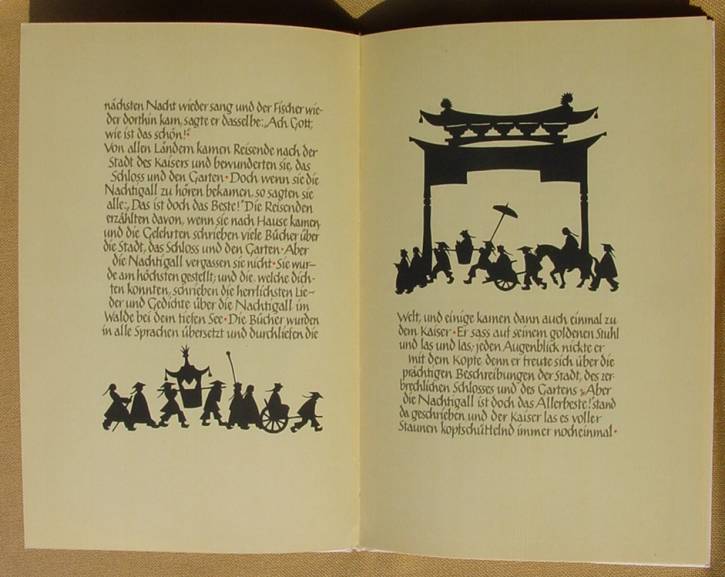 nächsten Nacht wieder sang und der Fischer wie-
der dorthin kam, sagte er dasselbe: „Ach Gott,
wie ist das schön!“
Von allen Ländern kamen Reisende nach der
Stadt des Kaisers und bewunderten sie, das
Schloss und den Garten · Doch wenn sie die
Nachtigall zu hören bekamen, so sagten sie
alle: „Das ist doch das Beste!“ Die Reisenden
erzählten davon, wenn sie nach Hause kamen,
und die Gelehrten schrieben viele Bücher über
die Stadt, das Schloss und den Garten · Aber
die Nachtigall vergassen sie nicht · Sie wur-
de am höchsten gestellt; und die, welche dich-
ten konnten, schrieben die herrlichsten Lie-
der und Gedichte über die Nachtigall im
Walde bei dem tiefen See · Die Bücher wurden
in alle Sprachen übersetzt und durchliefen die
Welt, und einige kamen dann auch einmal zu
dem Kaiser · Er sass auf seinem goldenen Stuhl
und las und las; jeden Augenblick nickte er
mit dem Kopfe, denn er freute sich über die
prächtigen Beschreibungen der Stadt, des zer-
brechlichen Schlosses und des Gartens · „Aber
die Nachtigall ist doch das Allerbeste!“ stand
da geschrieben und der Kaiser las es voller
Staunen kopfschüttelnd immer nocheinmal ·